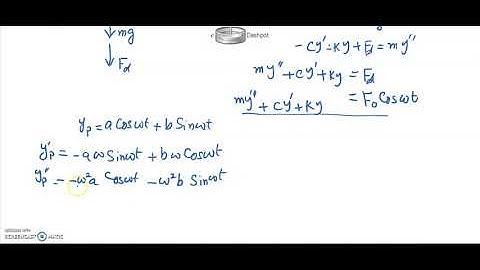 mg
F_d
Dashpot
- cy' - Ky + F_d = my''
my'' + cy' + Ky = F_d
my'' + cy' + Ky = F_0 Cos ωt
y_p = a Cos ωt + b Sin ωt
y'_p = -a ω Sin ωt + b ω Cos ωt
y''_p = -ω²a Cos ωt - ω²b Sin ωt
RECORDED WITH
SCREENCAST-O-MATIC